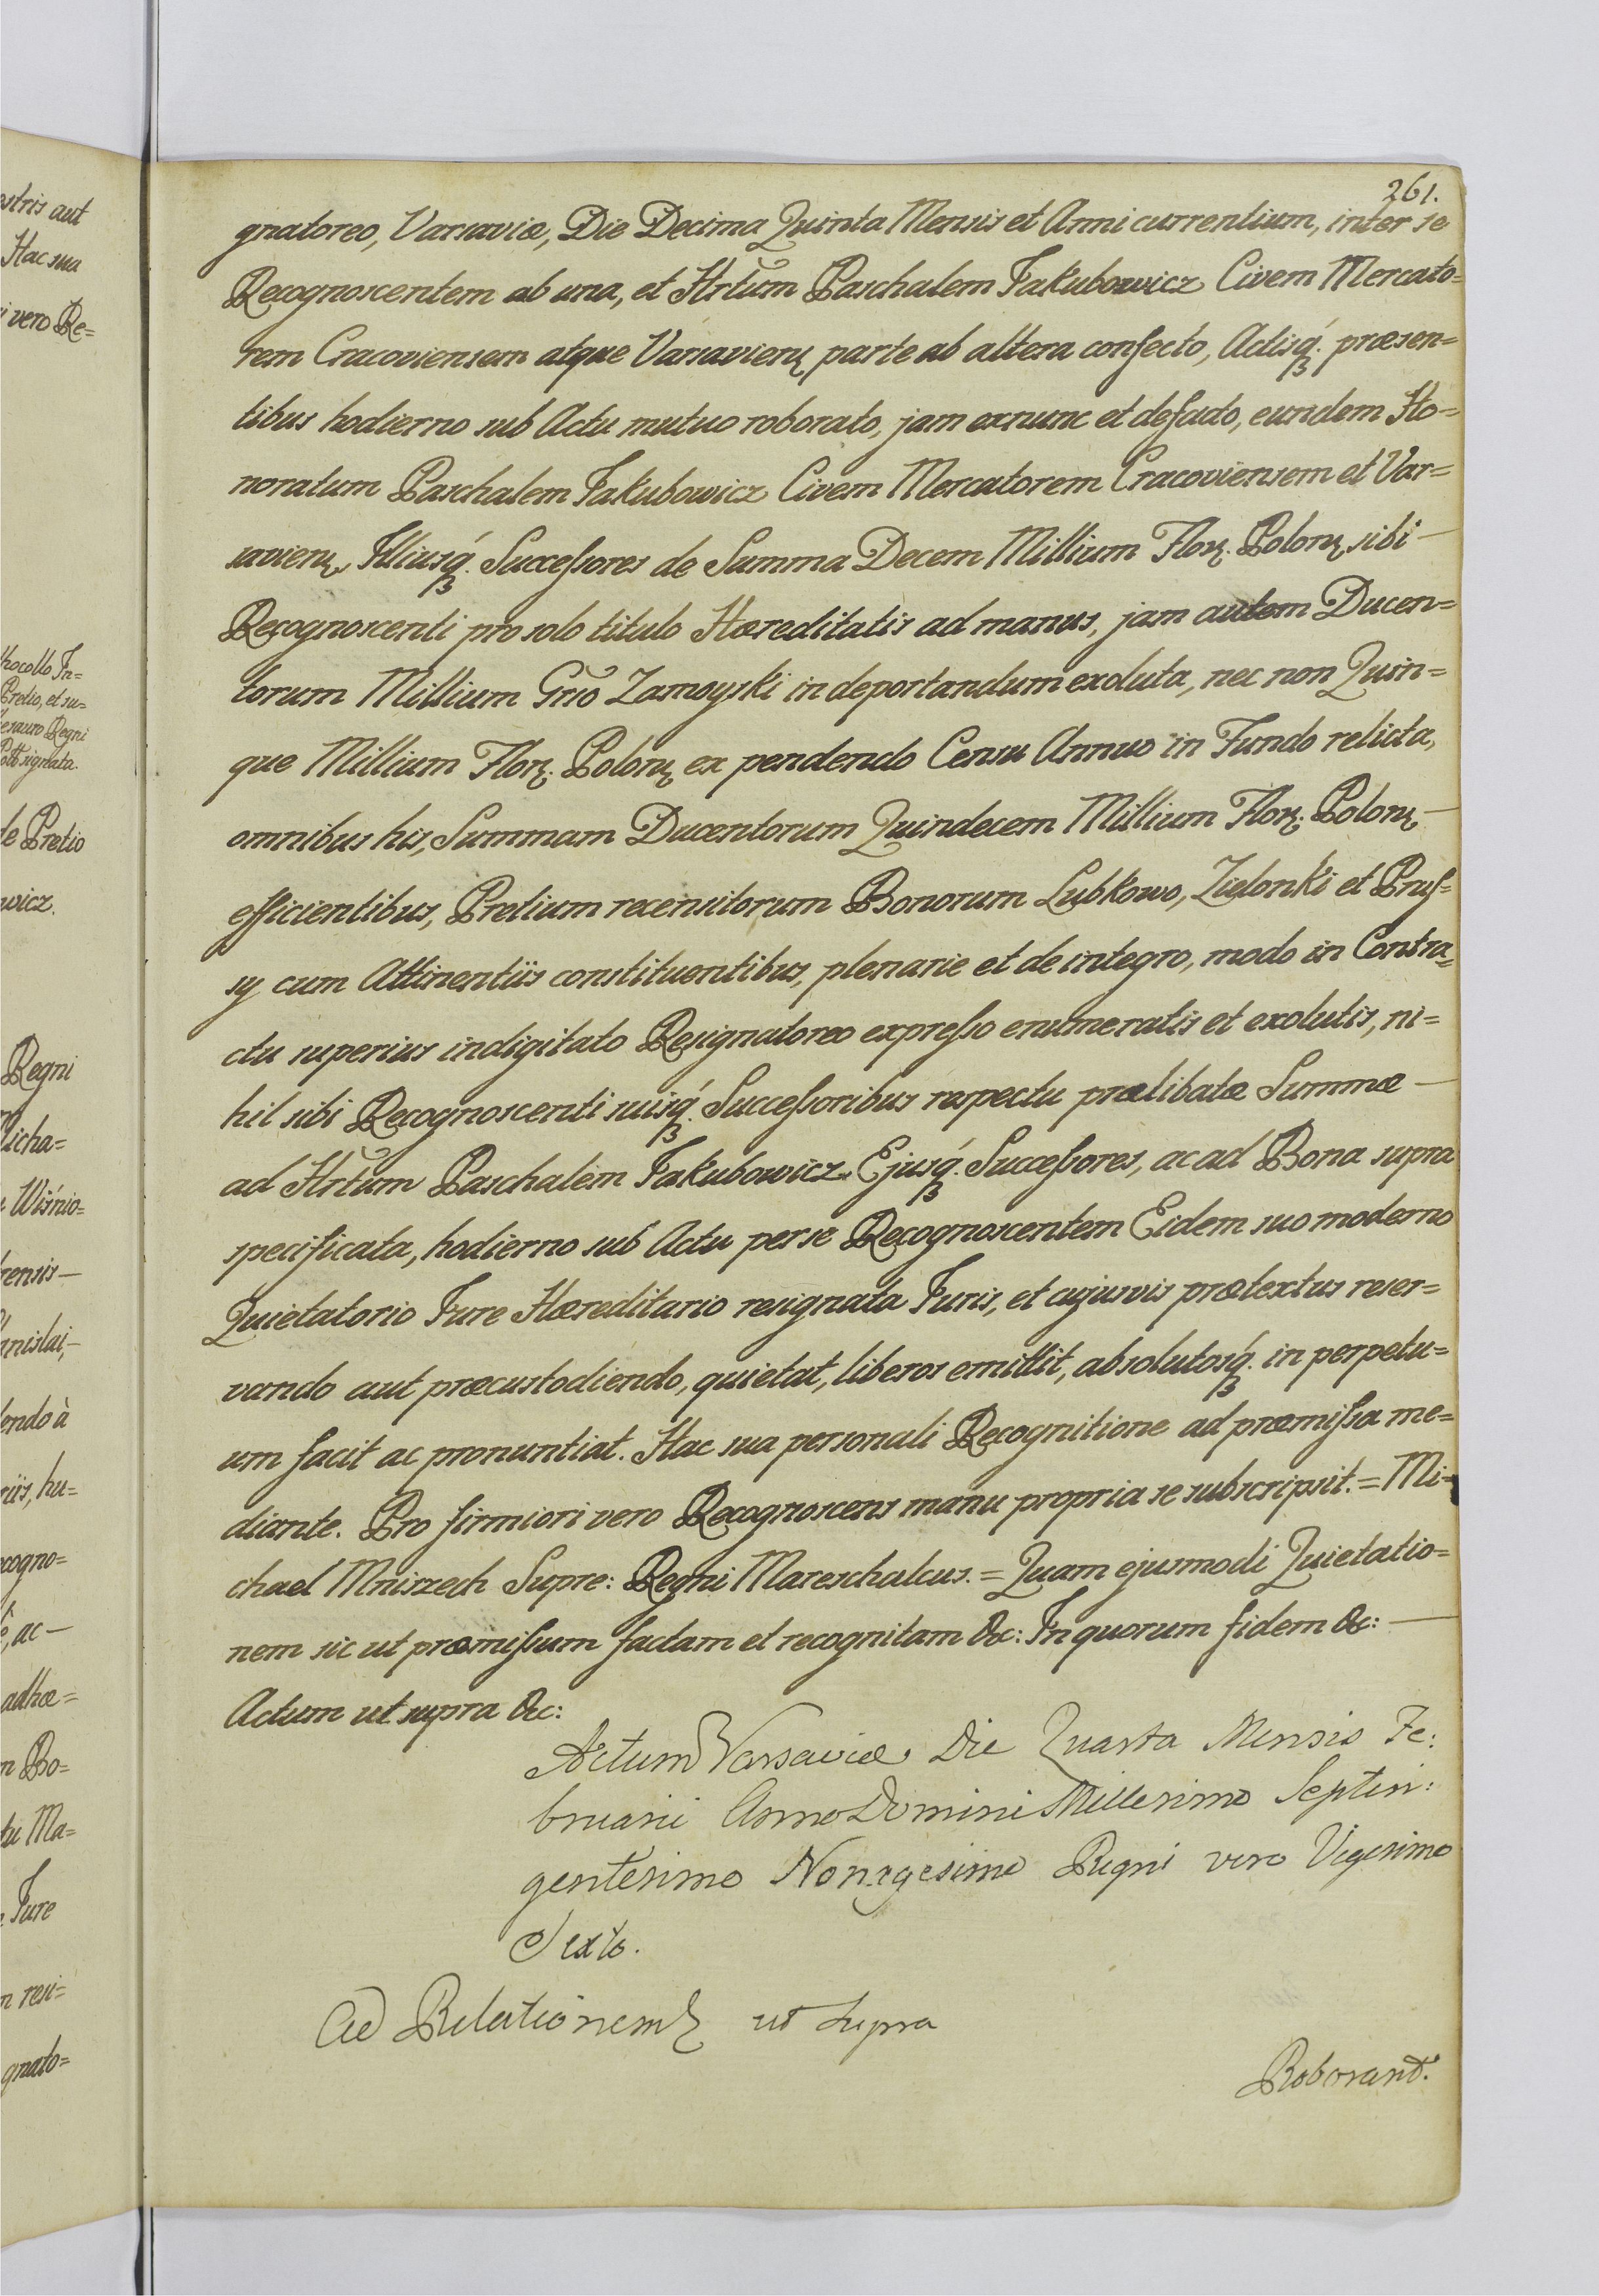 261.
gnatoreo, Varsaviæ, Die Decima Quinta Mensis et Anni currentium, inter se
Recognoscentem ab una, et Hrtum Paschalem Jakubowicz Civem Mercato=
rem Cracoviensem atque Varsavien parte ab altera confecto, Actisq́. præsen=
tibus hodierno sub Actu mutuo roborato, jam exnunc et defacto, eundem Ho=
noratum Paschalem Jakubowicz Civem Mercatorem Cracoviensem et Var=
savien, Illiusq́. Successores de Summa Decem Millium Flor. Polon, sibi —
Recognoscenti pro solo titulo Hæreditatis ad manus, jam autem Ducen=
torum Millium Grio Zamoyski in deportandum exoluta, nec non Quin=
que Millium Flor. Polon, ex pendendo Censu Annuo in Fundo relicta,
omnibus his, Summam Ducentorum Quindecem Millium Flor. Polon, —
efficientibus, Pretium recensitorum Bonorum Lubkowo, Zielonki et Prus=
sy cum Attinentiis constituentibus, plenarie et de integro, modo in Contra=
ctu superius indigitato Resignatoreo expresso enumeratis et exolutis, ni=
hil sibi Recognoscenti suisq́. Successoribus respectu prælibatæ Summæ —
ad Hrtum Paschalem Jakubowicz Ejusq́. Successores, ac ad Bona supra
specificata, hodierno sub Actu per se Recognoscentem Eidem suo moderno
Quietatorio Jure Hæreditario resignata Juris, et cujusvis prætextus reser=
vando aut præcustodiendo, quietat, liberos emittit, absolutosq́. in perpetu=
um facit ac pronuntiat. Hac sua personali Recognitione ad præmissa me=
diante. Pro firmiori vero Recognoscens manu propria se subscripsit. = Mi=
chael Mniszech Supre: Regni Mareschalcus. = Quam ejusmodi Quietatio=
nem sic ut præmissum factam et recognitam &c: In quorum fidem &c: —
Actum ut supra &c:
Actum Varsaviæ Die Quarta Mensis Fe:
bruarii Anno Domini Millesimo Septin:
gentesimo Nonagesimo Regni vero Vigesimo
Sexto.
Ad Relationem ut supra
Roborant.
ostris aut
Hac sua
i vero Re=
thocollo In=
Pretio, et su=
hesauro Regni
signata.
de Pretio
wicz.
Regni
licha=
Wiśnio=
rensis —
anislai, —
dendo à
riis, hu=
cogno=
ac —
adhæ=
m Bo=
tu Ma=
Jure
n resi=
gnato=